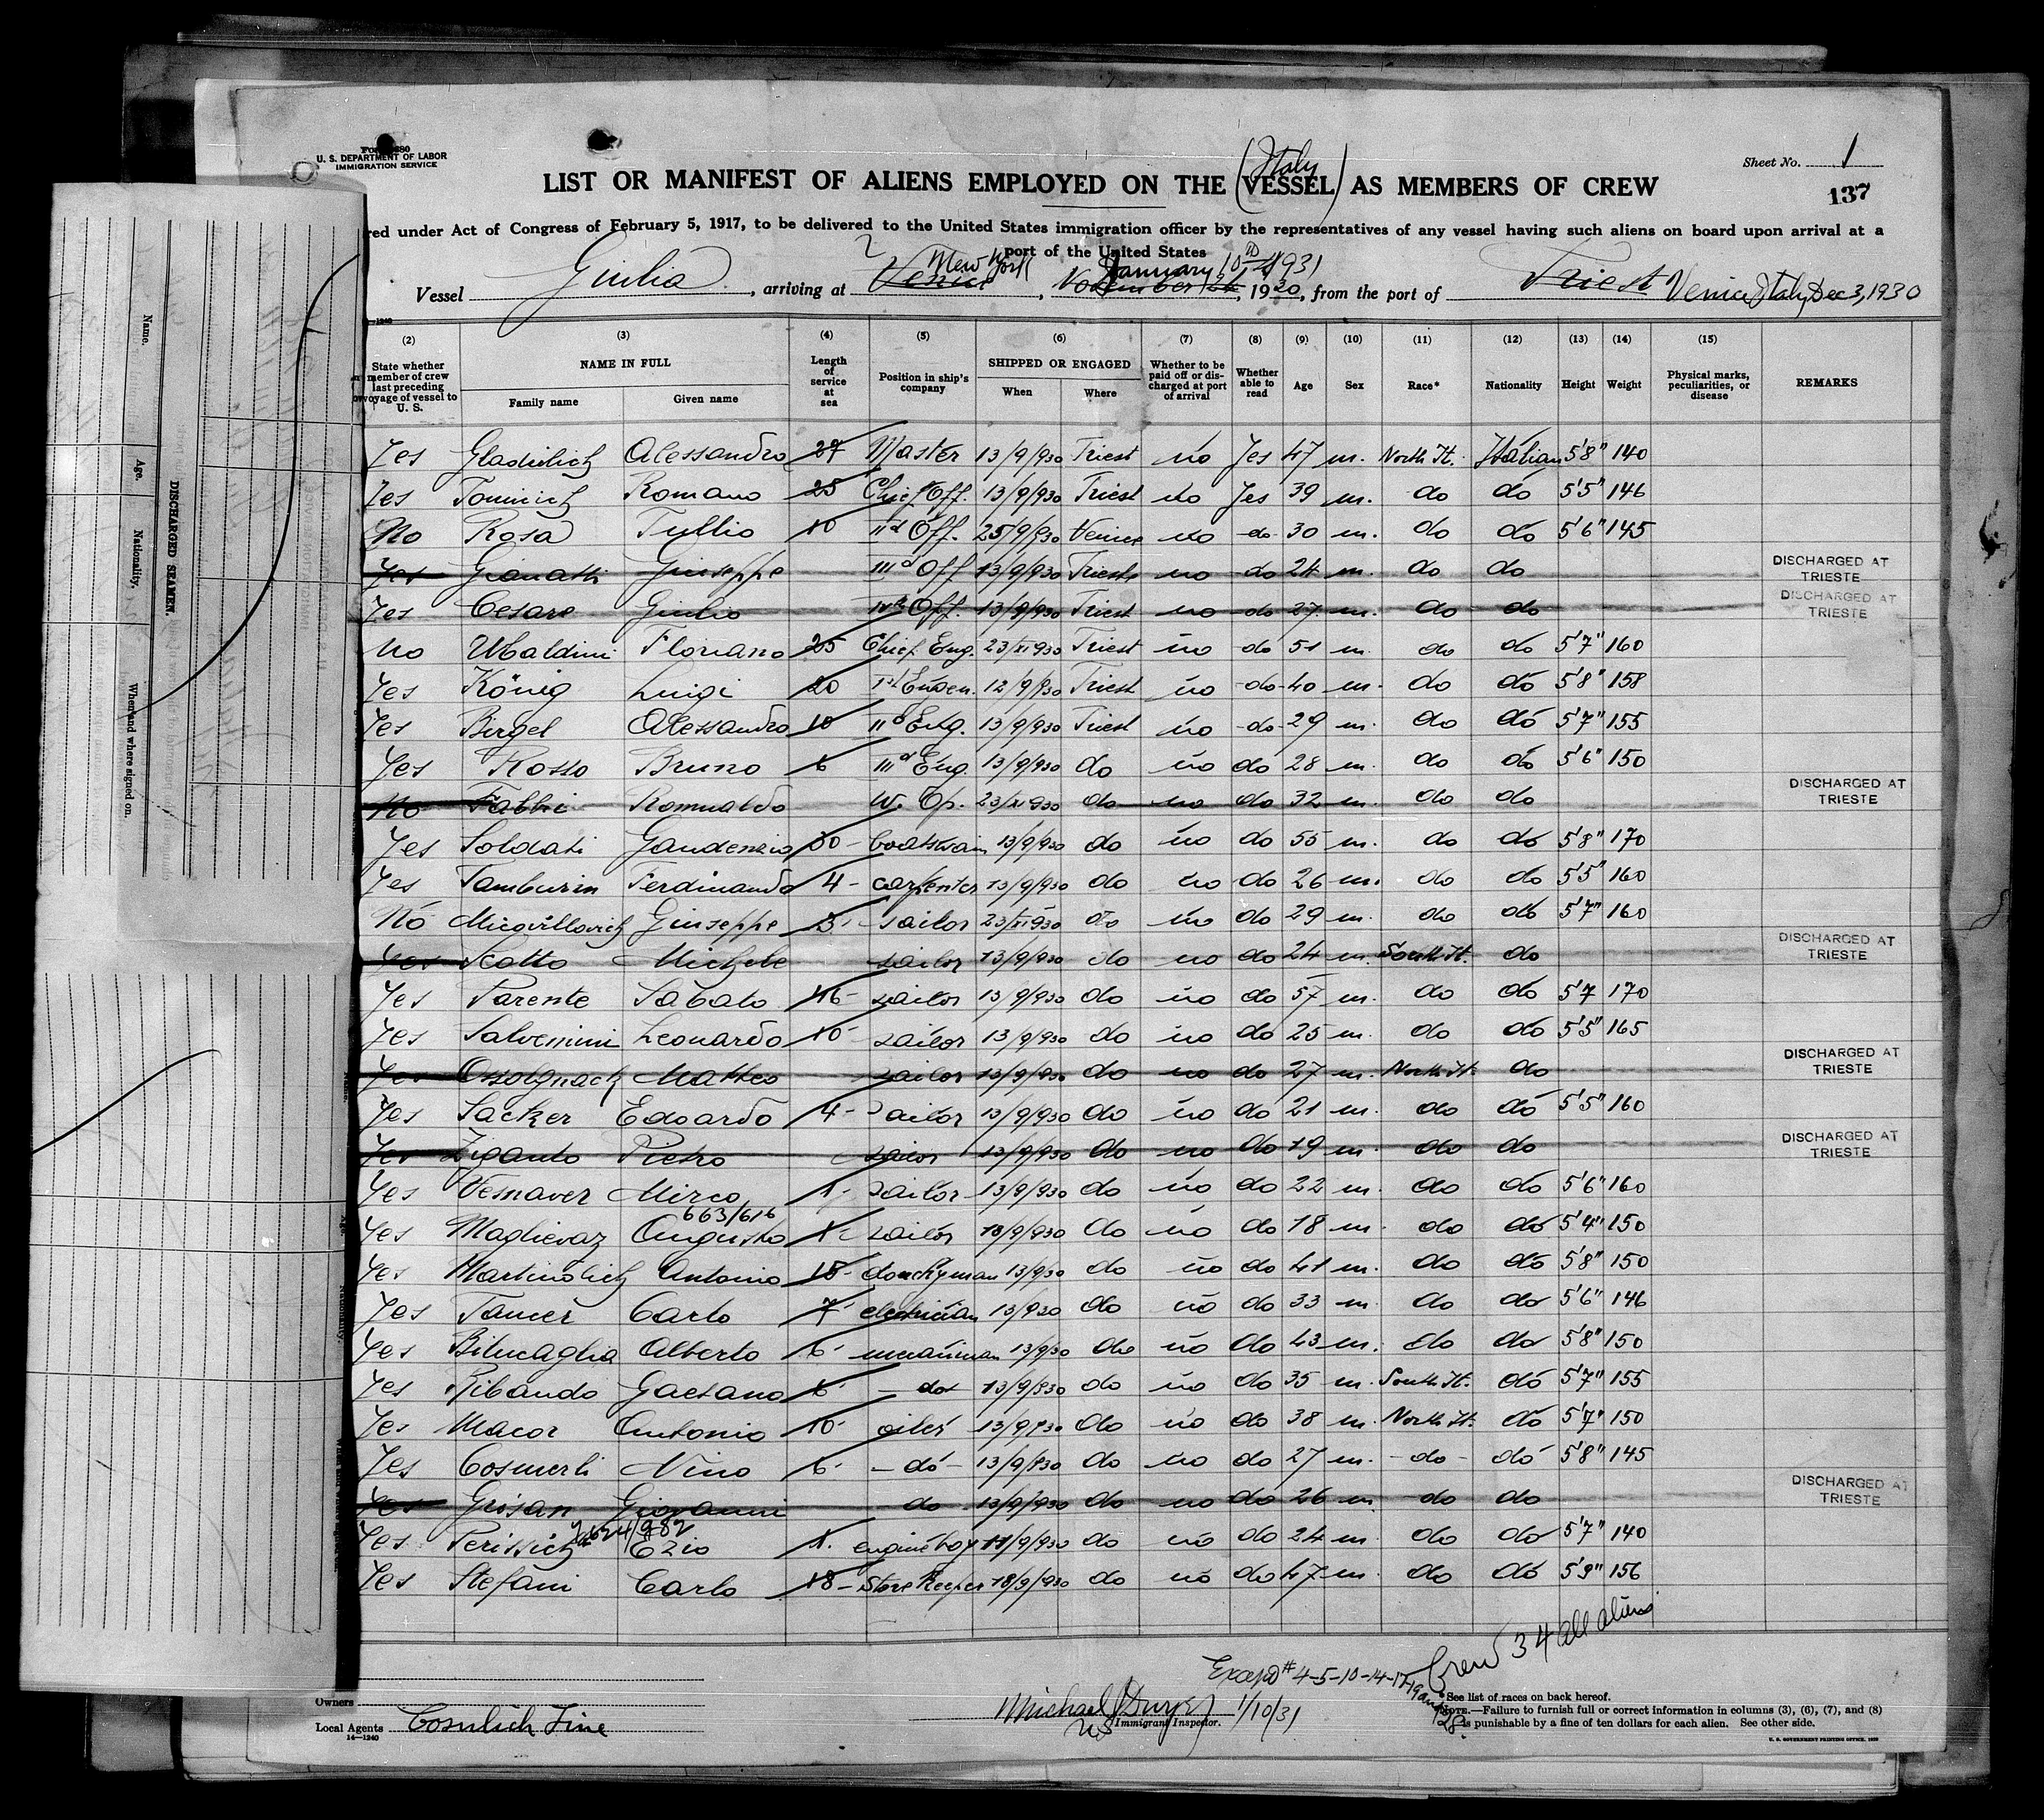 Form 680
U. S. DEPARTMENT OF LABOR
IMMIGRATION SERVICE
Sheet No. 1
137
(Italy)
LIST OR MANIFEST OF ALIENS EMPLOYED ON THE (VESSEL) AS MEMBERS OF CREW
red under Act of Congress of February 5, 1917, to be delivered to the United States immigration officer by the representatives of any vessel having such aliens on board upon arrival at a
port of the United States
Vessel Giulia, arriving at Venice New York, November January 10th 1931, 1930, from the port of Triest Venice Italy Dec 3, 1930
(2) (3) (4) (5) (6) (7) (8) (9) (10) (11) (12) (13) (14) (15)
State whether member of crew last preceding voyage of vessel to U. S. NAME IN FULL Family name Given name Length of service at sea Position in ship's company SHIPPED OR ENGAGED When Where Whether to be paid off or discharged at port of arrival Whether able to read Age Sex Race* Nationality Height Weight Physical marks, peculiarities, or disease REMARKS
Yes Gladulich Alessandro 27 Master 13/9/930 Triest no Yes 47 m. North It. Italian 5'8" 140
Yes Tominich Romano 25 Chief Off. 13/9/930 Triest no Yes 39 m. do do 5'5" 146
No Rosa Tullio 10 IId Off. 25/9/930 Venice no do 30 m. do do 5'6" 145
Yes Gianatti Giuseppe IIId Off 13/9/930 Trieste no do 24 m. do do DISCHARGED AT TRIESTE
Yes Cesare Giulio IVth Off. 13/9/930 Triest no do 27 m. do do DISCHARGED AT TRIESTE
No Ubaldini Floriano 25 Chief Eng. 23/XI 930 Triest no do 51 m do do 5'7" 160
Yes König Luigi 20 1st Engen. 12/9/930 Triest no do 40 m. do do 5'8" 158
Yes Birgel Alessandro 10 IId Eng. 13/9/930 Triest no do 29 m. do do 5'7" 155
Yes Rosso Bruno 6 IIId Eng. 13/9/930 do no do 28 m. do do 5'6" 150
No Fabbi Romualdo W. Op. 23/XI 930 do no do 32 m. do do DISCHARGED AT TRIESTE
Yes Soldati Gaudenzio 30 boatswain 13/9/930 do no do 55 m. do do 5'8" 170
Yes Tamburin Ferdinando 4 carpenter 13/9/930 do no do 26 m. do do 5'5" 160
No Giuseppe 3 sailor 23/XI 930 do no do 29 m. do do 5'7" 160
Yes Scotto Michele sailor 13/9/930 do no do 24 m. South It. do DISCHARGED AT TRIESTE
Yes Parente Sabato 46 sailor 13/9/930 do no do 57 m. do do 5'7 170
Yes Salvemini Leonardo 10 sailor 13/9/930 do no do 25 m. do do 5'5" 165
Yes Ossoignach Matteo sailor 13/9/930 do no do 27 m. North It. do DISCHARGED AT TRIESTE
Yes Sacker Edoardo 4 sailor 13/9/930 do no do 21 m. do do 5'5" 160
Yes Ziganto Pietro sailor 13/9/930 do no do 19 m. do do DISCHARGED AT TRIESTE
Yes Vesnaver Mirco 1 sailor 13/9/930 do no do 22 m. do do 5'6" 160
663/616
Yes Maglievaz Augusto 1 sailor 18/9/930 do no do 18 m. do do 5'4" 150
Yes Martinolich Antonio 15 donckyman 13/9/30 do no do 41 m. do do 5'8" 150
Yes Tancer Carlo 7 electrician 13/9/30 do no do 33 m. do do 5'6" 146
Yes Bilucaglia Alberto 6 13/9/30 do no do 43 m. do do 5'8" 150
Yes Ribaudo Gaetano 6 do 13/9/930 do no do 35 m. South It. do 5'7" 155
Yes Macor Antonio 10 oiler 13/9/930 do no do 38 m. North It. do 5'7" 150
Yes Cosmerli Nino 6 do 13/9/930 do no do 27 m. do do 5'8" 145
Yes Grisan Giovanni do 13/9/930 do no do 26 m do do DISCHARGED AT TRIESTE
624/982
Yes Perissich Ezio 1 engine boy 11/9/930 do no do 24 m. do do 5'7" 140
Yes Stefani Carlo 18 Store Keeper 18/9/930 do no do 47 m. do do 5'9" 156
Crew 34 all aliens
Except # 4-5-10-14-17-19 and 28.
Owners
Local Agents Cosulich Line
14—1240
Michael Dwyer 1/10/31
Immigrant Inspector.
*See list of races on back hereof.
NOTE.—Failure to furnish full or correct information in columns (3), (6), (7), and (8)
is punishable by a fine of ten dollars for each alien. See other side.
U. S. GOVERNMENT PRINTING OFFICE
DISCHARGED SEAMEN.
Name. Age. Nationality. When and where signed on.